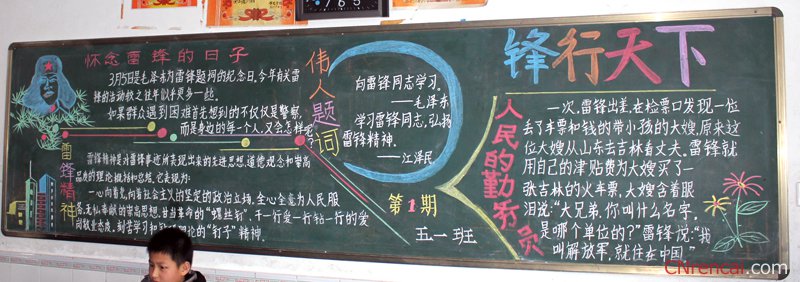 怀念雷锋的日子
3月5日是毛泽东为雷锋题词的纪念日。今年有关雷
锋的活动较之往年似乎更多一些。
如果群众遇到困难首先想到的不仅仅是警察,
而是身边的每一个人,又会怎样呢?
雷锋精神
雷锋精神是对雷锋事迹所表现出来的先进思想、道德观念和崇高
品质的理论概括和总结。它表现为:
一心向着党,向着社会主义的坚定的政治立场,全心全意为人民服
务、无私奉献的崇高思想,甘当革命的“螺丝钉”、干一行爱一行钻一行的爱
岗敬业态度,刻苦学习和钻研理论的“钉子”精神。
伟人题词
向雷锋同志学习。
——毛泽东
学习雷锋同志,弘扬
雷锋精神。
——江泽民
第1期
五一班
锋行天下
人民的勤务员
一次,雷锋出差,在检票口发现一位
丢了车票和钱的带小孩的大嫂,原来这
位大嫂从山东去吉林看丈夫。雷锋就
用自己的津贴费为大嫂买了一
张吉林的火车票,大嫂含着眼
泪说:“大兄弟,你叫什么名字,
是哪个单位的?”雷锋说:“我
叫解放军,就住在中国。”
CNrencai.com